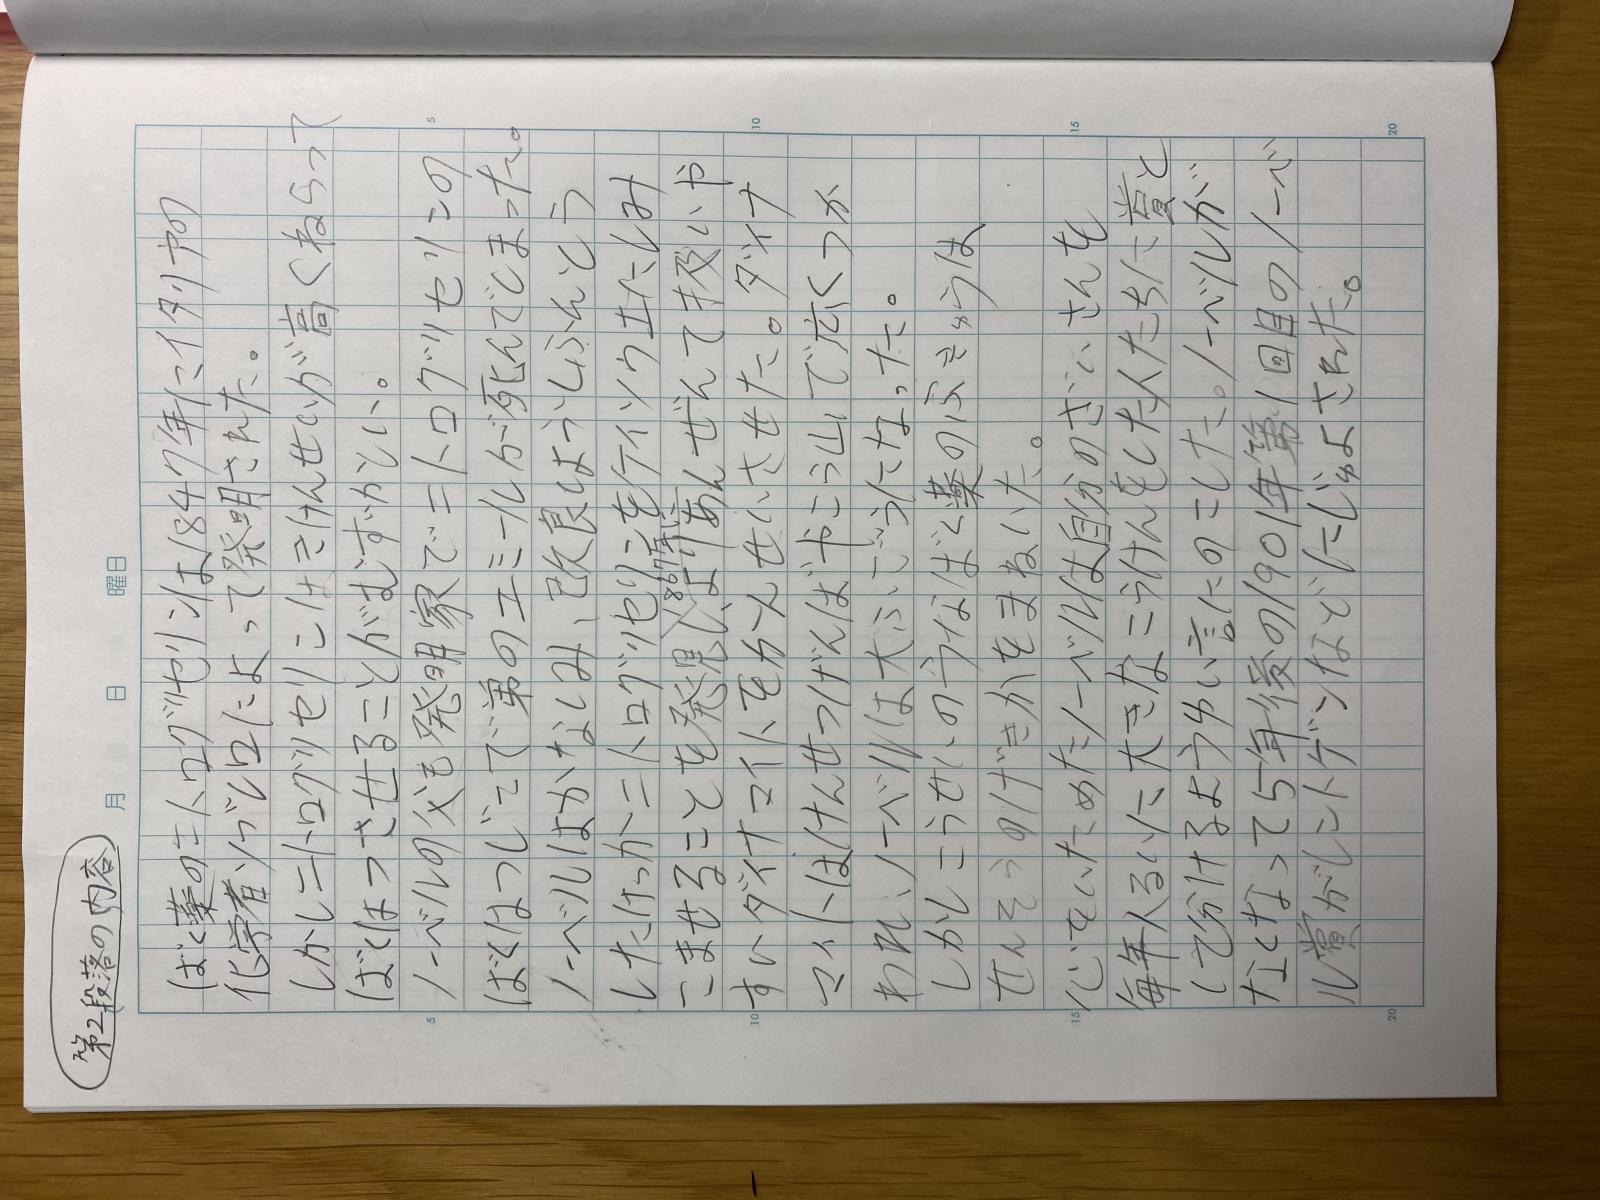 第2段落の内容
月 日 曜日
ばく薬のニトログリセリンは1847年にイタリヤの
化学者ソブレロによって発明された。
しかしニトログリセリンはきけんせいが高くねらって
ばくはつさせることがむずかしい。
ノーベルの父も発明家でニトログリセリンの
ばくはつじこで弟のエミールが死んでしまった。
ノーベルはかなしみ、改良しようしふんとう
したけっかニトログリセリンをケイソウ土にしみ
こませることを発見し、1867年により安んぜんで扱いや
すいダイナマイトをかんせいさせた。ダイナ
マイトはけんせつげんばやこう山で広くつか
われ、ノーベルは大ふごうになった。
しかしこうせいのうなばく薬のふきゅうは
せんそうのげきかをまねいた。
心をいためたノーベルは自分のざいさんを
毎年人るいに大きなこうけんをした人たちに賞と
して分けるようゆい言にのこした。ノーベルが
なくなって5年後の1901年第1回目のノーベ
ル賞がレントゲンなどにじゅよされた。
5
10
15
20
5
10
15
20